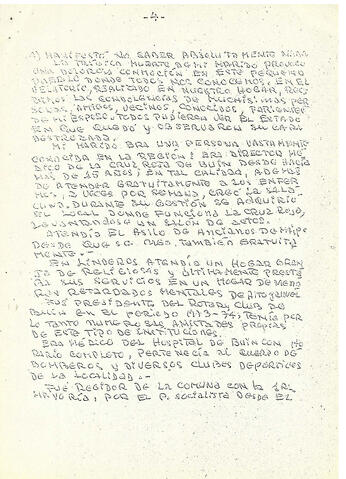 - 4 -
1) MANIFESTÓ NO SABER ABSOLUTAMENTE NADA.
LA TRÁGICA MUERTE DE MI MARIDO PROVOCÓ
UNA DOLOROSA CONMOCIÓN EN ESTE PEQUEÑO
PUEBLO DONDE TODOS NOS CONOCEMOS. EN EL
VELATORIO, REALIZADO EN NUESTRO HOGAR, RECI-
BIMOS LAS CONDOLENCIAS DE MUCHÍSIMAS PER-
SONAS, AMIGOS, VECINOS, CONOCIDOS, PARIENTES
DE MI ESPOSO. TODOS PUDIERON VER EL ESTADO
EN QUE QUEDÓ Y OBSERVARON SU CARA
DESTROZADA.
MI MARIDO ERA UNA PERSONA VASTAMENTE
CONOCIDA EN LA REGIÓN: ERA DIRECTOR MÉ-
DICO DE LA CRUZ ROJA DE BUIN DESDE HACÍA
MÁS DE 15 AÑOS; EN TAL CALIDAD, ADEMÁS
DE ATENDER GRATUITAMENTE A LOS ENFER-
MOS, 2 VECES POR SEMANA, CREÓ LA SALA
CUNA. DURANTE SU GESTIÓN SE ADQUIRIÓ
EL LOCAL DONDE FUNCIONA LA CRUZ ROJA,
LEVANTÁNDOSE UN SALÓN DE ACTOS.
ATENDÍA EL ASILO DE ANCIANOS DE MAIPO
DESDE QUE SE CREÓ, TAMBIÉN GRATUITA
MENTE.
EN LINDEROS ATENDÍA UN HOGAR GRAN
JA DE RELIGIOSAS Y ÚLTIMAMENTE PRESTA
BA SUS SERVICIOS EN UN HOGAR DE MENO
RES RETARDADOS MENTALES DE
FUE PRESIDENTE DEL ROTARY CLUB DE
BUIN EN EL PERÍODO 1973-74; TENÍA POR
LO TANTO NUMEROSAS AMISTADES PROPIAS
DE ESTE TIPO DE INSTITUCIONES.
ERA MÉDICO DEL HOSPITAL DE BUIN CON HO
RARIO COMPLETO, PERTENECÍA AL CUERPO DE
BOMBEROS Y DIVERSOS CLUBES DEPORTIVOS
DE LA LOCALIDAD.-
FUE REGIDOR DE LA COMUNA CON LA 1RA
MAYORÍA, POR EL P. SOCIALISTA DESDE EL